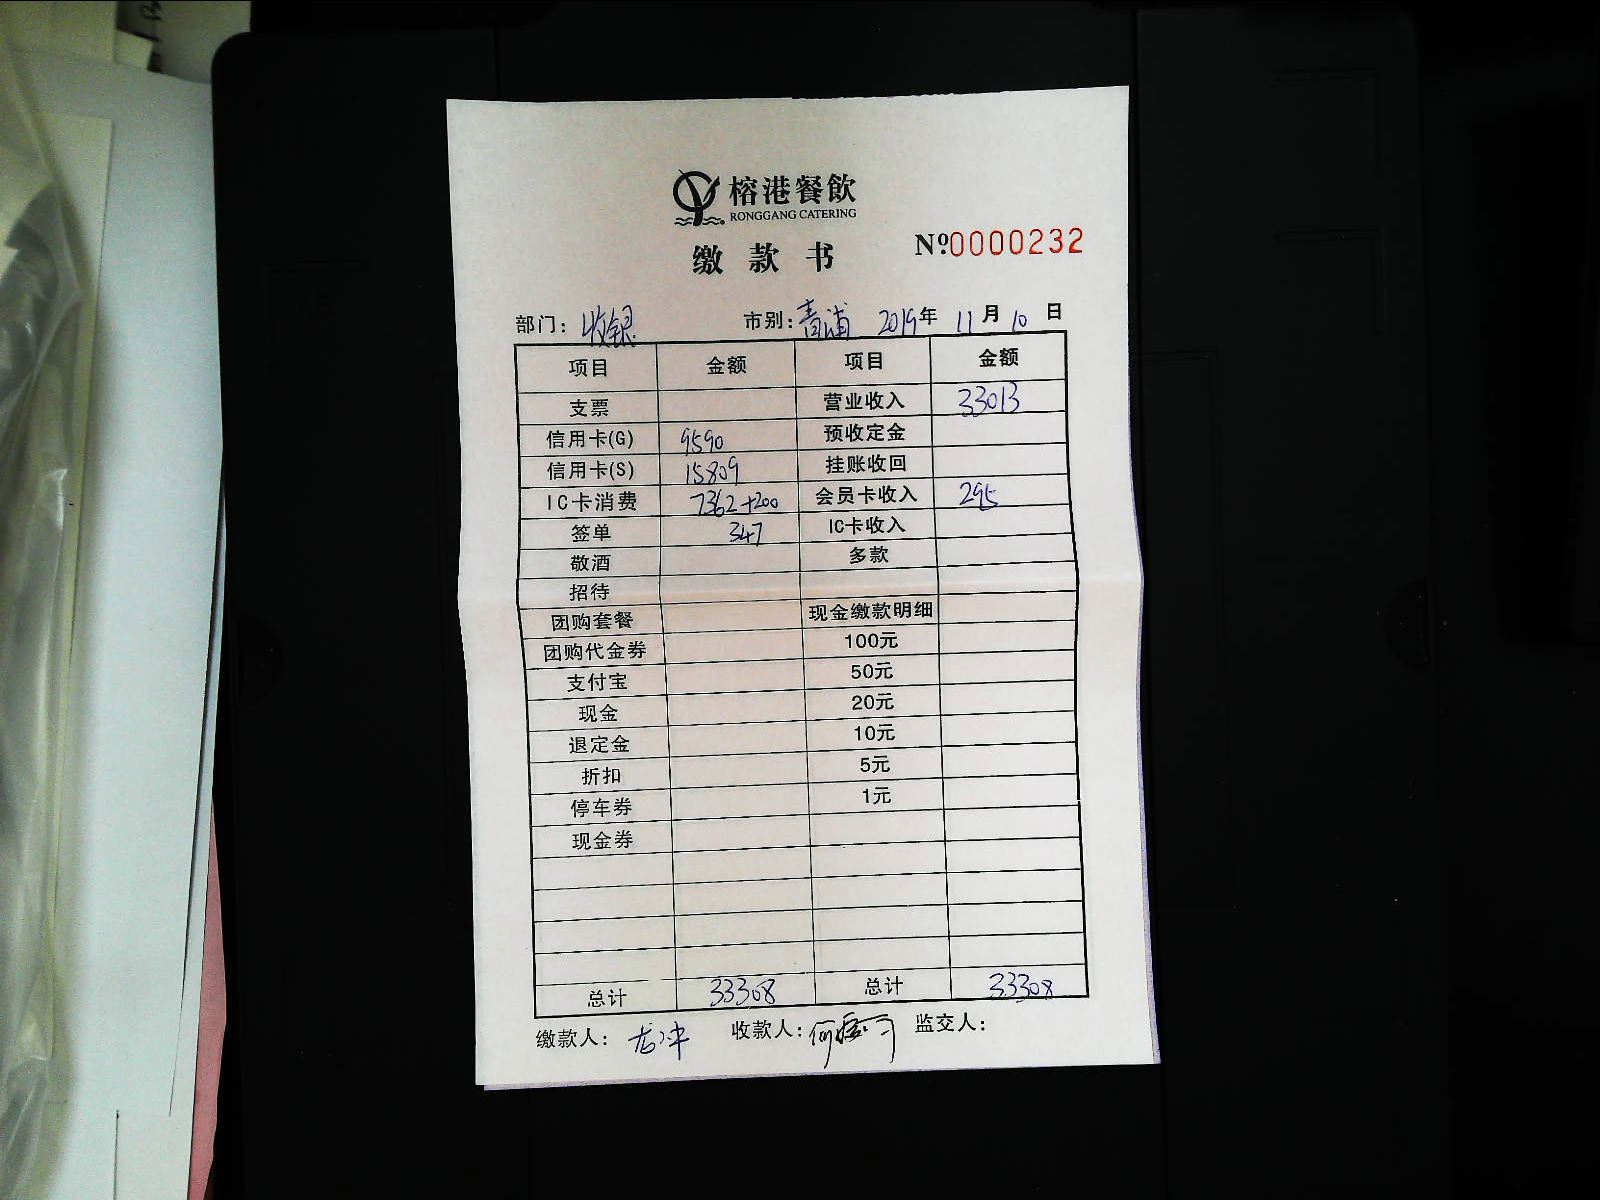 榕港餐飲
RONGGANG CATERING
缴款书 Nº0000232
部门：收银 市别：青浦 2019年 11月 10日
项目 金额 项目 金额
支票 营业收入 33013
信用卡(G) 9590 预收定金
信用卡(S) 15809 挂账收回
IC卡消费 7362+200 会员卡收入 295
签单 347 IC卡收入
敬酒 多款
招待
团购套餐 现金缴款明细
团购代金券 100元
支付宝 50元
现金 20元
退定金 10元
折扣 5元
停车券 1元
现金券
总计 33308 总计 33308
缴款人： 收款人： 监交人：